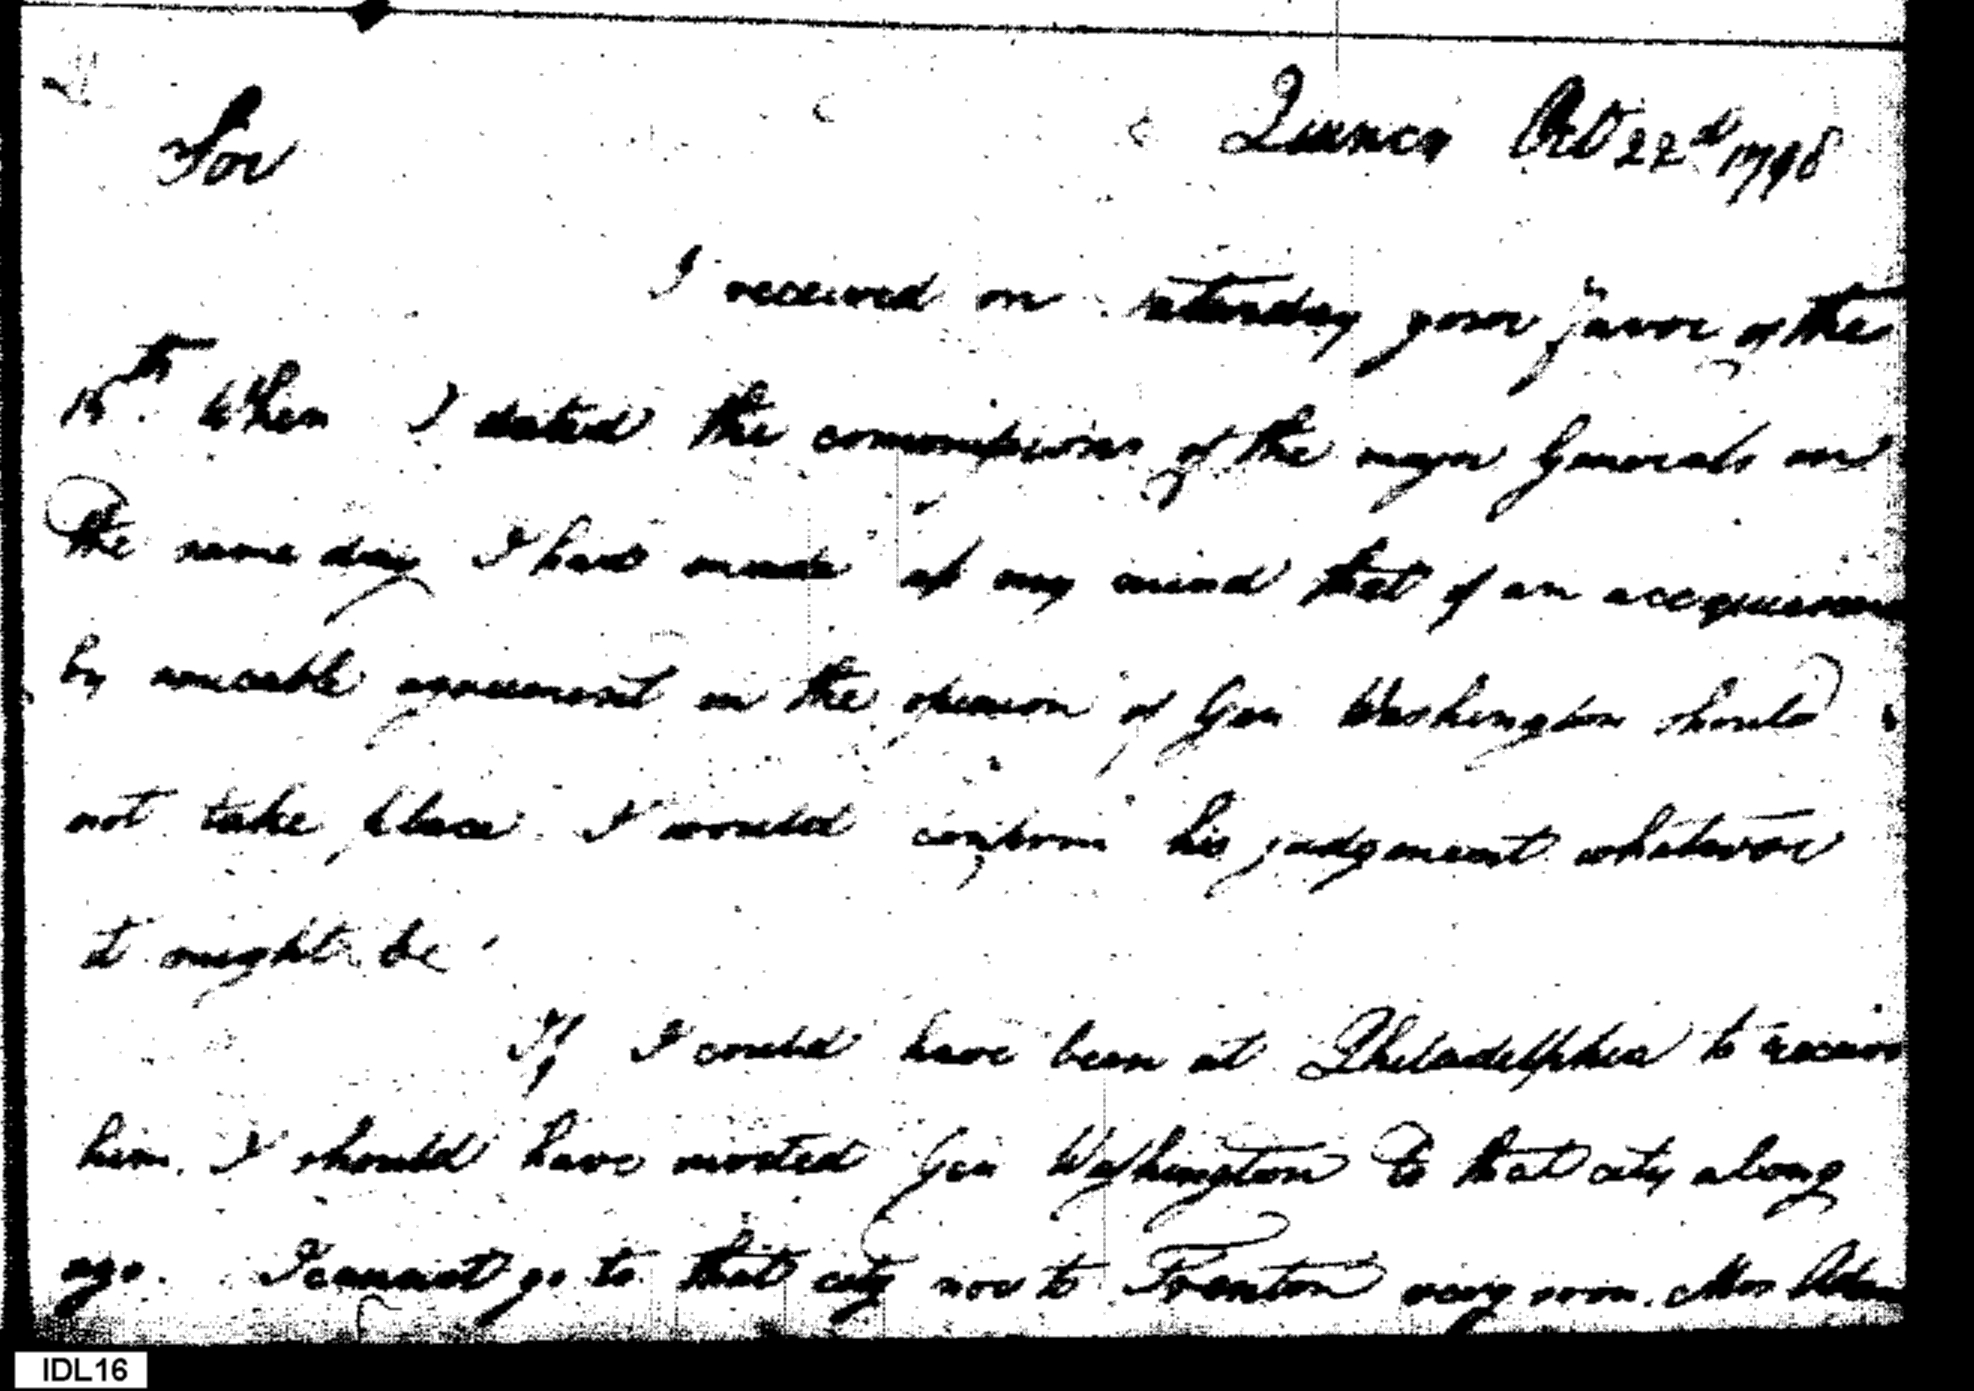 Sir
Quincy Oct 22d 1798
I received on saturday your favor of the
When I dated the commissions of the major Generals on
the same day I had made up my mind that if an
by amicable agreement in the opinion of Gen Washington should
not take place I would confirm his judgement whatever
it might be
If I could have been at Philadelphia to receive
him. I should have invited Gen Washington to that city along
ago. I cannot go to that city nor to Trenton very soon. Mrs Adam
IDL16